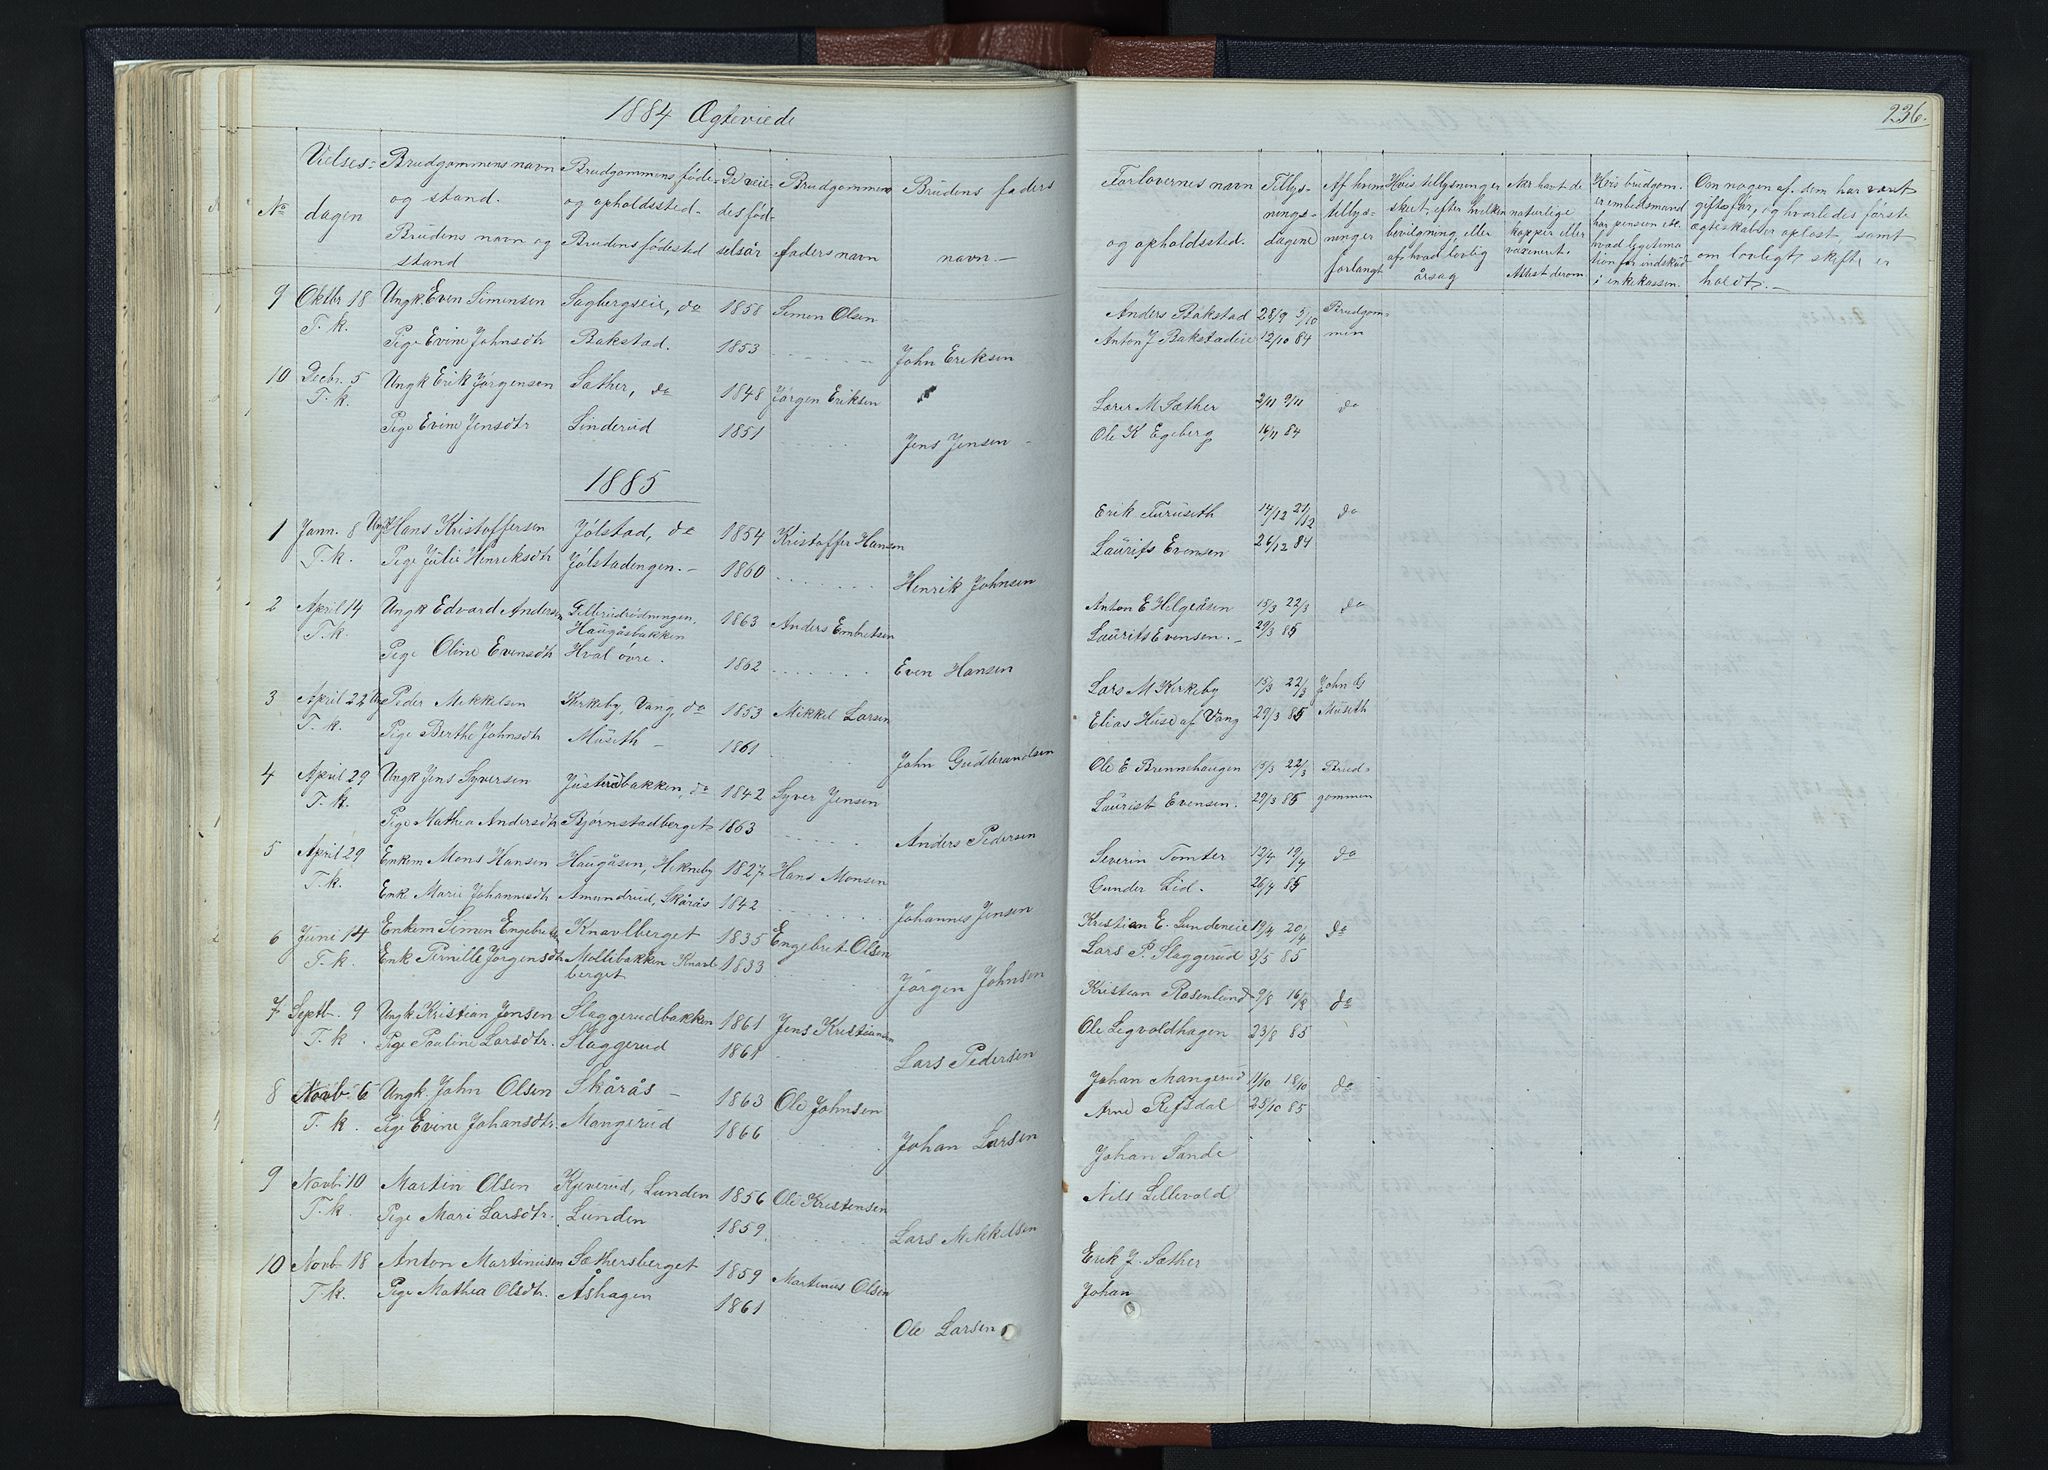 1884 Ægteviede
No
Vielses-
dagen
Brudgommens navn
og stand.
Brudens navn og
stand
Brudgommens føde-
og opholdssted.
Brudens fødested
De veie-
des fød-
selsår
Brudgommens
faders navn
Brudens faders
navn.—
9 Oktbr 18 Ungk. Even Simensen Sagbergseie, do 1858 Simon Olsen
T. k. Pige Evine Johnsdtr Bakstad. 1853 John Eriksen
10 Decbr. 5 Ungk Erik Jørgensen Sæther, do 1848 Jørgen Eriksen
T. k. Pige Evine Jensdtr Linderud 1851 Jens Jensen
1885
1 Jann. 8 Ungk Hans Kristoffersen Jølstad, do 1854 Kristoffer Hansen
T. k. Pige Julie Henriksdtr Jølstadengen.— 1860 Henrik Johnsen
2 April 14 Ungk Edvard Andersen
Haugåsbakken 1863 Anders Embretsen
T. k. Pige Oline Evensdtr Hval øvre. 1862 Even Hansen
3 April 22 Ung Peder Mikkelsen Kirkeby, Vang, do 1853 Mikkel Larsen
T. k. Pige Berthe Johnsdtr Museth — 1861 John Gudbrandsen
4 April 29 Ungk Jens Syversen Justerudbakken, do 1842 Syver Jensen
T. k. Pige Mathea Andersdtr Bjørnstadberget 1863 Anders Pedersen
5 April 29 Enkem Mons Hansen Haugåsen, Hekneby 1827 Hans Monsen
T. k. Enke Marie Johannesdtr Amundrud, Skårås 1842 Johannes Jensen
6 Juni 14 Enkem Simen Engebretsen Knavlberget 1835 Engebret Olsen
T. k. Enk Pernille Jørgensdtr Mollibakken Knavl-
berget 1833 Jørgen Johnsen
7 Septb. 9 Ungk Kristian Jensen Slaggerudbakken 1861 Jens Kristiansen
T. k. Pige Pauline Larsdtr. Slaggerud 1861 Lars Pedersen
8 Novb. 6 Ungk. John Olsen Skårås — 1863 Ole Johnsen
T. k. Pige Evine Johansdtr. Mangerud 1866 Johan Larsen
9 Novb. 10 Martin Olsen Kjeverud, Lunden 1856 Ole Kristensen
T. k. Pige Mari Larsdtr. Lunden 1859. Lars Mikkelsen
10 Novb 18 Anton Martinusen Sæthersberget 1859 Martinus Olsen
T. k. Pige Mathea Olsdtr. Åshagen 1861 Ole Larsen
236.
Forlovernes navn
og opholdssted.
Tillys-
nings-
dagene
Af hvem
tillys-
ninger
forlangt
Hvis tillysning er
skeet, efter hvilken
bevilgning, eller
af hvad lovlig
årsag
Når havt de
naturlige
kopper eller
vaxineret.
Attest derom.
Hvis brudgom.
er embedsmand
har pension etc.
hvad legitima-
tion for indskud
i enkekassen.
Om nogen af dem har været
gift før, og hvorledes første
ægteskab er opløst, samt
om lovligt skifte er
holdt.—
Anders Bakstad 28/9 5/10 Brudgom-
Anton J Bakstadeie 12/10 84 men
Lærer M Sæther 2/11 9/11 do
Ole K Egeberg 16/11 84
Erik Furuseth 14/12 21/12 do
Laurits Evensen 26/12 84
Anton E Helgesen 15/3 22/3 do
Laurits Evensen.— 29/3 85
Lars M Kirkeby 15/3 22/3 John G
Elias Huse af Vang 29/3 85 Museth
Ole E Brennehaugen 15/3 22/3 Brud-
Laurist Evensen. 29/3 85 gommen
Severin Tomter 12/4 19/4 do
Gunder Lid. 26/4 85
Kristian E. Lundeneie 19/4 20/4 do
Lars P. Slaggerud 3/5 85
Kristian Rosenlund 9/8 16/8 do
Ole Legvoldhagen 23/8 85
Johan Mangerud 11/10 18/10 do
Arne Refsdal 25/10 85
Johan Sande
Nils Lillevold
Erik J. Sæther
Johan